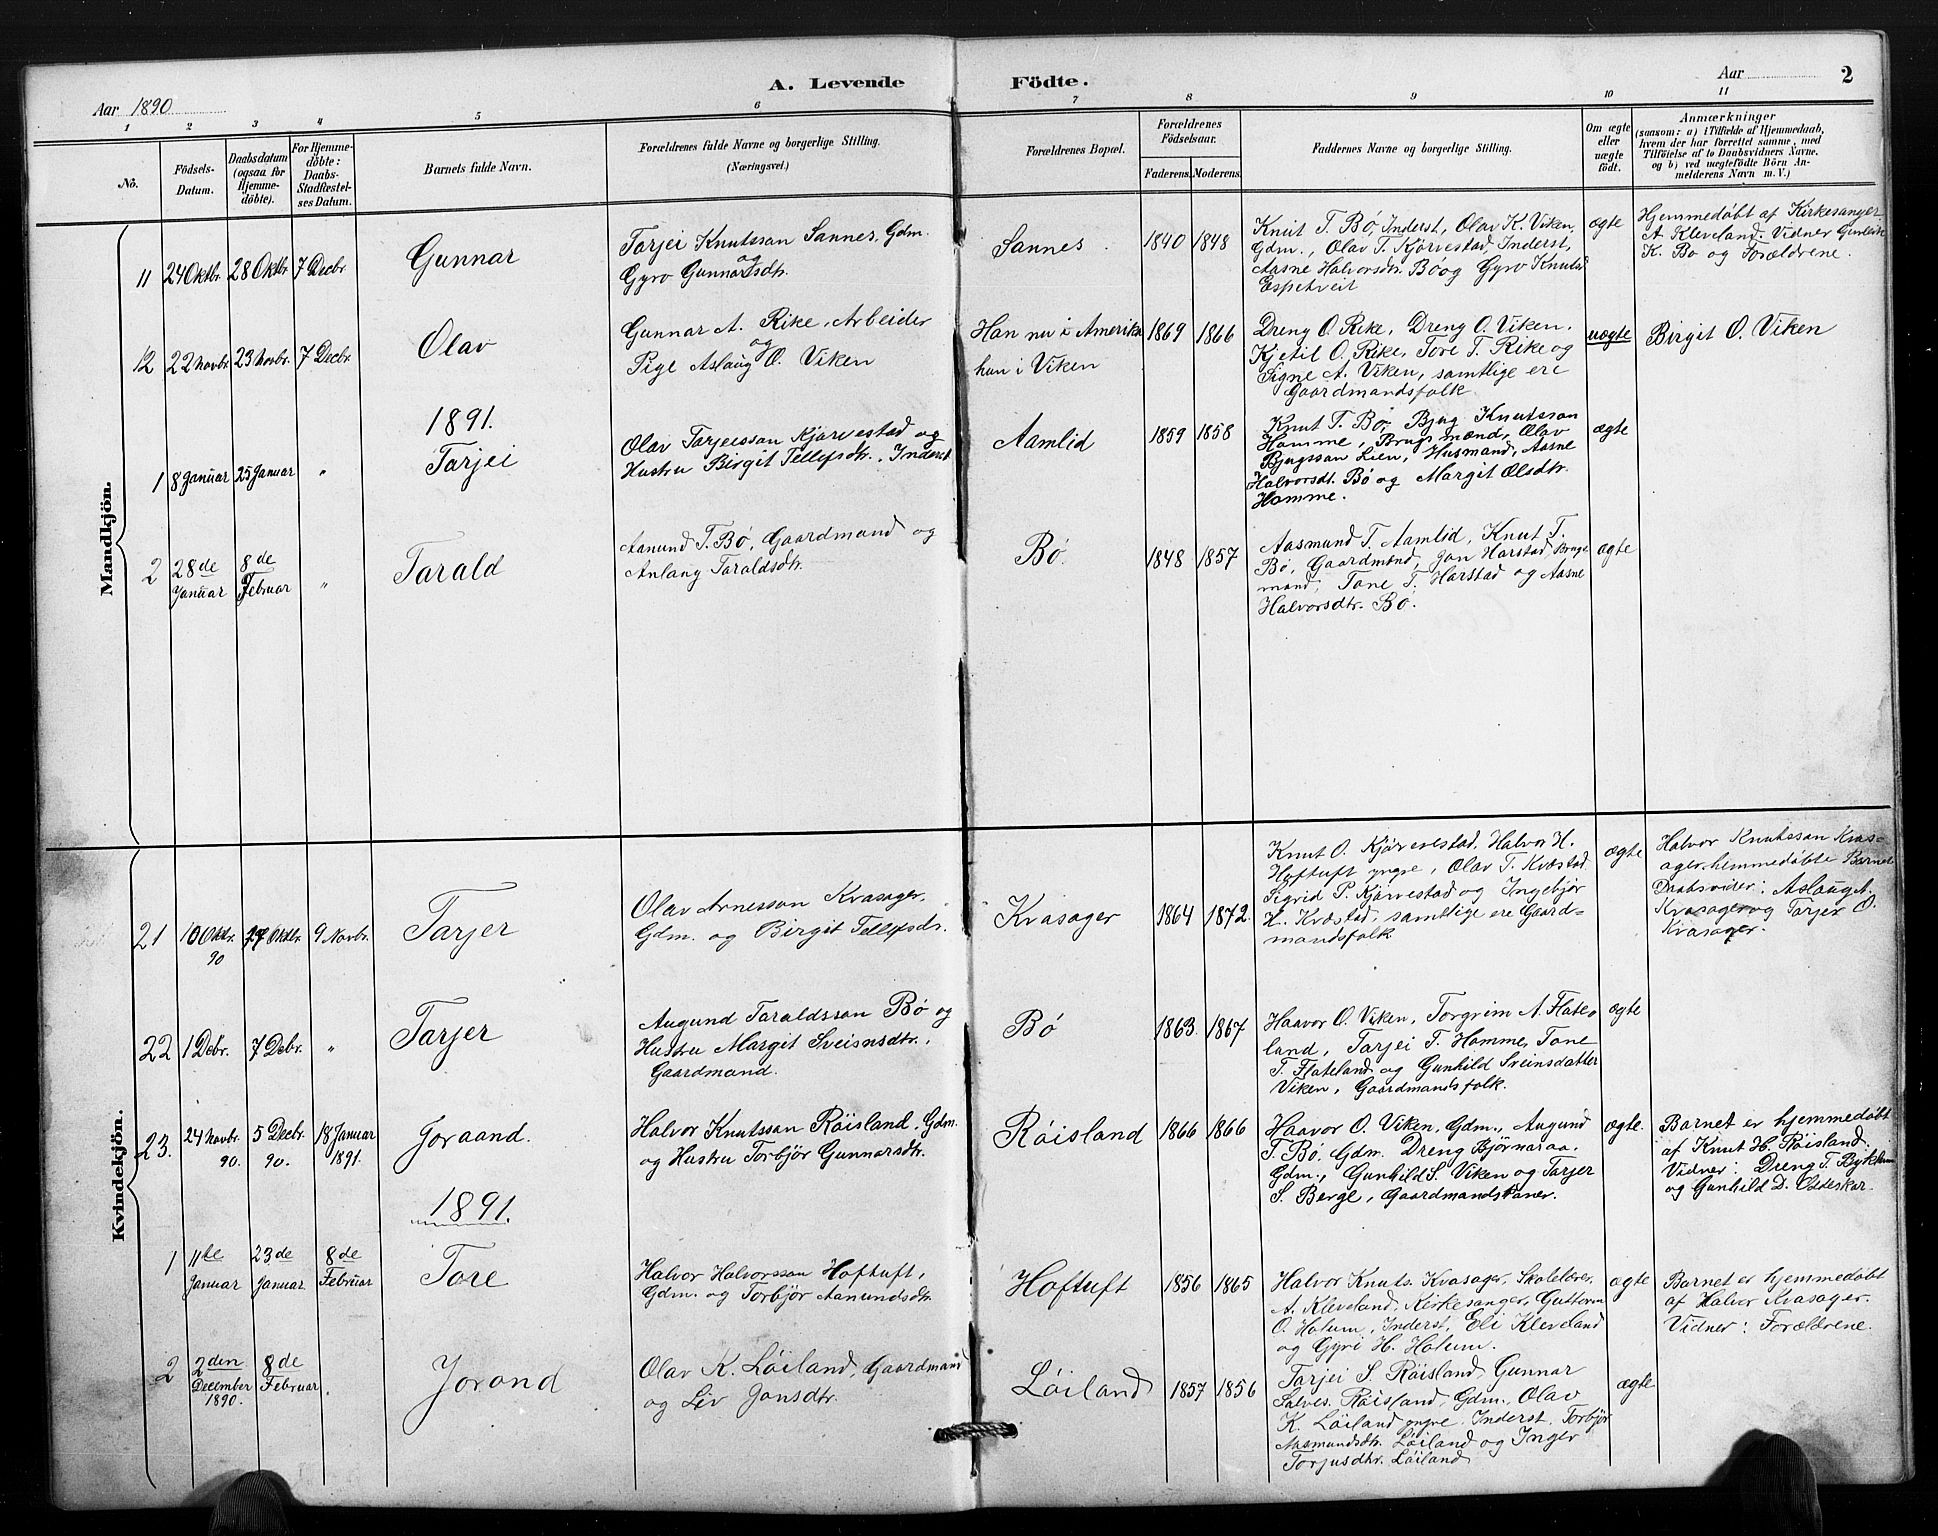 A. Levende Födte.
Aar 1890
Aar
2
1 2 3 4 5 6 7 8 9 10 11
No.
Födsels-
Datum.
Daabsdatum
(ogsaa for
Hjemme-
döbte).
For Hjemme-
döbte:
Daabs-
Stadfæstel-
ses Datum.
Barnets fulde Navn.
Forældrenes fulde Navne og borgerlige Stilling.
(Næringsvei.)
Forældrenes Bopæl.
Forældrenes
Födselsaar.
Faderens. Moderens.
Faddernes Navne og borgerlige Stilling.
Om ægte
eller
uægte
födt.
Anmærkninger
(saasom: a) i Tilfælde af Hjemmedaab,
hvem der har forrettet samme, med
Tilföielse af to Daabsvidners Navne.
og b) ved uægtefödte Börn An-
melderens Navn m. V.)
Mandkjön.
11 24 Oktbr. 28 Oktbr. 7 Decbr.
Gunnar
Tarjei Knutsson Sannes, Gdm.
og
Gyro Gunnarsdtr.
Sannes.
1840 1848
Knut T. Bø, Inderst, Olav K. Viken,
Gdm., Olav T. Kjørvestad, Inderst,
Aasne Halvorsdtr. Bø og Gyro Knutsd
Espetveit
ægte
Hjemmedøbt af Kirkesanger
A. Kleveland. Vidner Gunleik
K. Bø og Forældrene.
12 22 Novbr. 23 Novbr. 7 Decbr.
Olav
Gunnar A. Rike, Arbeider
og
Pige Aslaug O. Viken
Han nu i Amerika
hun i Viken
1869 1866
Dreng O. Rike, Dreng O. Viken.
Kjetil O. Rike, Tore T. Rike og
Signe A. Viken, samtlige ere
Gaardmandsfolk.
uægte
Birgit O. Viken
1891.
1 8 Januar 25 Januar "
Tarjei
Olav Tarjeisson Kjørvestad og
Hustru Birgit Tellefsdtr., Inderst
Aamlid
1859 1858
Knut T. Bø, Bjug Knutsson
Homme, Brugsmænd, Olav
Bjugsson Lien, Husmand, Aasne
Halvorsdt. Bø og Margit Olsdtr.
Homme.
ægte
2 28de Januar 8de Februar "
Tarald
Aanund T. Bø, Gaardmand og
Anlaug Taraldsdtr.
Bø.
1848 1857
Aasmund T. Aamlid, Knut T.
Bø, Gaardmænd, Jon Harstad Bruge
mand, Tone T. Harstad og Aasne
Halvorsdtr. Bø.
ægte
Kvindekjön.
21 10 Oktr. 90 Oktbr. 9 Novbr.
Tarjer
Olav Arnesson Kvasager.
Gdm. og Birgit Tellefsdr.
Kvasager
1864 1872.
Knut O. Kjørvestad, Halvor H.
Hoftuft yngre, Olav T. Kvæstad
Sigrid P. Kjørvestad og Ingebjør
H. Kvæstad, samtlige ere Gaard=
mandsfolk
ægte
Halvor Knutsson Kvas-
ager hjemmedøbte Barnet
Daabsvidner: Aslaug A.
Kvasager og Tarjer O.
Kvasager.
22 1 Debr. 7 Debr. "
Tarjer
Augund Taraldsson Bø og
Hustru Margit Sveinsdtr.,
Gaardmand.
Bø
1863 1867
Haavor O. Viken, Torgrim A. Flate=
land, Tarjei T. Homme, Tone
T. Flateland og Gunhild Sveinsdatter
Viken, Gaardmandsfolk.
ægte
23. 24 Novbr. 90. 5 Decbr. 90. 18 Januar 1891.
Joraand.
Halvor Knutsson Røisland, Gdm.
og Hustru Torbjør Gunnarsdtr.
Røisland
1866 1866
Haavor O. Viken, Gdm., Augund
T. Bø, Gdm. Dreng Bjørnaraa.
Gdm., Gunhild S. Viken og Tarjer
S. Berge, Gaardmandskoner.
ægte.
Barnet er hjemmedøbt
af Knut H. Røisland.
Vidner: Dreng T. Bykkum
og Gunhild D. Odeskar.
1891.
1 11te Januar 23de Januar 8de Februar
Tore
Halvor Halvorsson Hoftuft,
Gdm. og Torbjør Aanundsdtr.
Hoftuft
1856 1865
Halvor Knuts. Kvasager, Skolelærer,
A. Kleveland, Kirkesanger, Guttorm
O. Holum, Inderst, Eli Kleveland
og Gyri H. Holum.
ægte
Barnet er hjemmedøbt
af Halvor Kvasager.
Vidner: Forældrene.
2 2den December 1890. 8de Februar .
Jorond
Olav K. Løiland, Gaardmand
og Liv Jonsdtr.
Løiland
1857 1856
Tarjei S. Røisland, Gunnar
Salves. Røisland, Gdm., Olav
K. Løiland yngre. Inderst, Torbjør
Aasmundsdtr. Løiland og Inger
Torjusdtr. Løiland
ægte